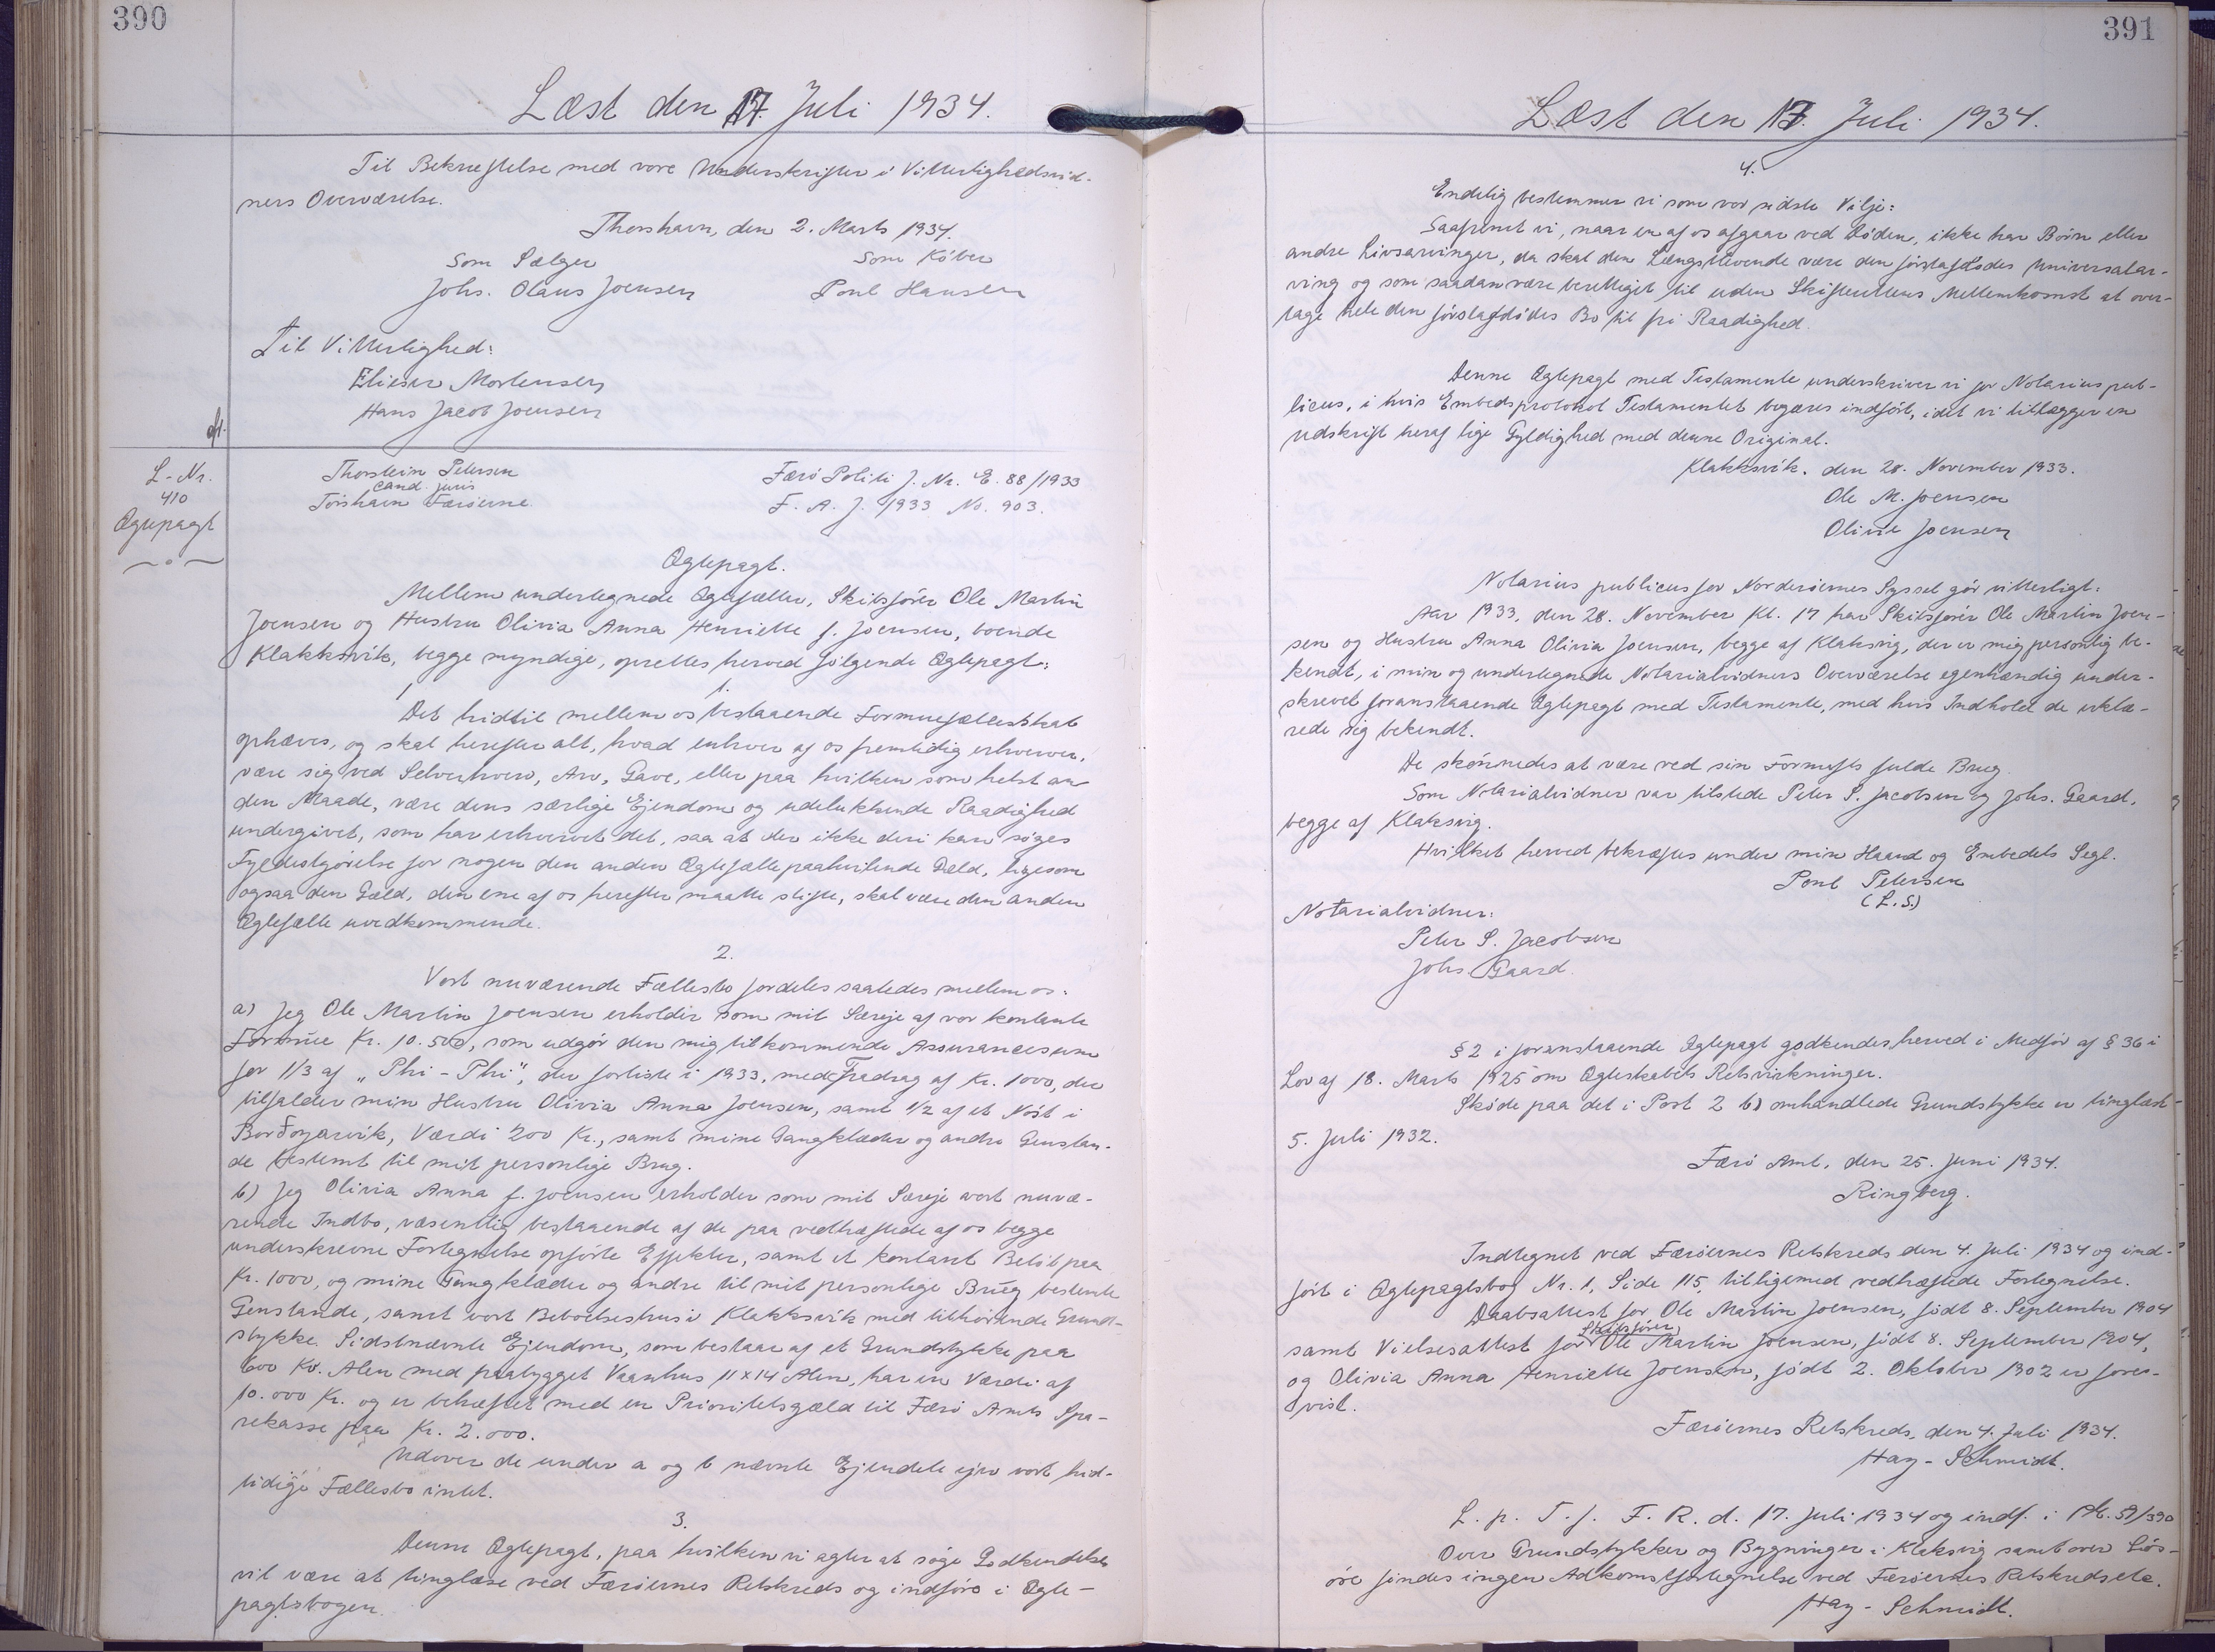 390
Læst den 17. Juli 1934.
Til Bekræftelse med vore Underskrifter i Vitterlighedsvid-
ners Overværelse.
Thorshavn, den 2. Marts 1934.
Som Sælger
Som Køber
Johs. Olaus Joensen
Poul Hansen
Til Vitterlighed:
Elieser Mortensen
Hans Jacob Joensen
afl.
L-Nr.
410
Ægtepagt
Thorstein Petersen
cand. juris
Tórshavn Færøerne.
Færø Politi J. Nr. E. 88/1933
F. A. J. 1933 No. 903.
Ægtepagt.
Mellem undertegnede Ægtefæller, Skibsfører Ole Martin
Joensen og Hustru Olivia Anna Henriette f. Joensen, boende
Klakksvik, begge myndige, oprettes herved følgende Ægtepagt:
1.
Det hidtil mellem os bestaaende Formuefællesskab
ophæves, og skal herefter alt, hvad enhver af os fremtidig erhverver,
være sig ved Selverhverv, Arv, Gave, eller paa hvilken som helst an
den Maade, være dens særlige Ejendom og udelukkende Raadighed
undergivet, som har erhvervet det, saa at der ikke deri kan søges
Fyldestgørelse for nogen den anden Ægtefælle paahvilende Gæld, ligesom
ogsaa den Gæld, den ene af os herefter maatte stifte, skal være den anden
Ægtefælle uvedkommende.
2.
Vort nuværende Fællesbo fordeles saaledes mellem os:
a) Jeg Ole Martin Joensen erholder som mit Særeje af vor kontante
Formue Kr. 10.500, som udgør den mig tilkommende Assurancesum
for 1/3 af "Phi-Phi", der forliste i 1933, med Fradrag af Kr. 1000, der
tilfalder min Hustru Olivia Anna Joensen, samt 1/2 af et Nóst i
Borðoyarvík, Værdi 200 Kr., samt mine Gangklæder og andre Genstan-
de bestemt til mit personlige Brug.
b) Jeg Olivia Anna f. Joensen erholder som mit Særeje vort nuvæ-
rende Indbo, væsentlig bestaaende af de paa vedhæftede af os begge
underskrevne Fortegnelse opførte Effekter, samt et kontant Beløb paa
Kr. 1000, og mine Gangklæder og andre til mit personlige Brug bestemte
Genstande, samt vort Beboelseshus i Klakksvík med tilhørende Grund-
stykke. Sidstnævnte Ejendom, som bestaar af et Grundstykke paa
600 Kv. Alen med paabygget Vaanhus 11 x 14 Alen, har en Værdi af
10.000 Kr. og er behæftet med en Prioritetsgæld til Færø Amts Spa-
rekasse paa Kr. 2.000.
Udover de under a og b nævnte Ejendele ejer vort hid-
tidige Fællesbo intet.
3.
Denne Ægtepagt, paa hvilken vi agter at søge Godkendelse
vil være at tinglæse ved Færøernes Retskreds og indføre i Ægte-
pagtsbogen.
391
Læst den 17. Juli 1934.
4.
Endelig bestemmer vi som vor sidste Vilje:
Saafremt vi, naar en af os afgaar ved Døden, ikke har Børn eller
andre Livsarvinger, da skal den Længstlevende være den førstafdødes Universalar-
ving og som saadan være berettiget til uden Skifterettens Mellemkomst at over-
tage hele den førstafdødes Bo til fri Raadighed.
Denne Ægtepagt med Testamente underskriver vi for Notarius pub-
licus, i hvis Embedsprotokol Testamentet begæres indført, idet vi tillægger en
Udskrift heraf lige Gyldighed med denne Original.
Klakksvík, den 28. November 1933.
Ole M. Joensen
Olivie Joensen
Notarius publicus for Norderøernes Syssel gør vitterligt:
Aar 1933, den 28. November Kl. 17 har Skibsfører Ole Martin Joen-
sen og Hustru Anna Olivia Joensen, begge af Klaksvig, der er mig personlig be-
kendt, i min og undertegnede Notarialvidners Overværelse egenhændig under-
skrevet foranstaaende Ægtepagt med Testamente, med hvis Indhold de erklæ-
rede sig bekendt.
De skønnedes at være ved sin Fornufts fulde Brug.
Som Notarialvidner var tilstede Peter S. Jacobsen og Johs. Gaard,
begge af Klaksvig.
Hvilket herved bekræftes under min Haand og Embedets Segl.
Poul Petersen
(L.S.)
Notarialvidner:
Peter S. Jacobsen
Johs. Gaard.
§ 2 i foranstaaende Ægtepagt godkendes herved i Medfør af § 36 i
Lov af 18. Marts 1925 om Ægteskabets Retsvirkninger.
Skøde paa det i Post 2 b) omhandlede Grundstykke er tinglæst
5. Juli 1932.
Færø Amt, den 25. Juni 1934.
Ringberg.
Indtegnet ved Færøernes Retskreds den 4. Juli 1934 og ind-
ført i Ægtepagtsbog Nr. 1, Side 115, tilligemed vedhæftede Fortegnelse.
Daabsattest for Ole Martin Joensen, født 8. September 1904
Skibsfører
samt Vielsesattest for Ole Martin Joensen, født 8. September 1904,
og Olivia Anna Henriette Joensen, født 2. Oktober 1902 er forev-
vist.
Færøernes Retskreds, den 4. Juli 1934.
Hay-Schmidt.
L. p. T. f. F. R. d. 17. Juli 1934 og indf. i
Over Grundstykker og Bygninger i Klaksvig samt over Løs-
øre findes ingen Adkomstfortegnelse ved Færøernes Retskreds etc.
Hay-Schmidt.